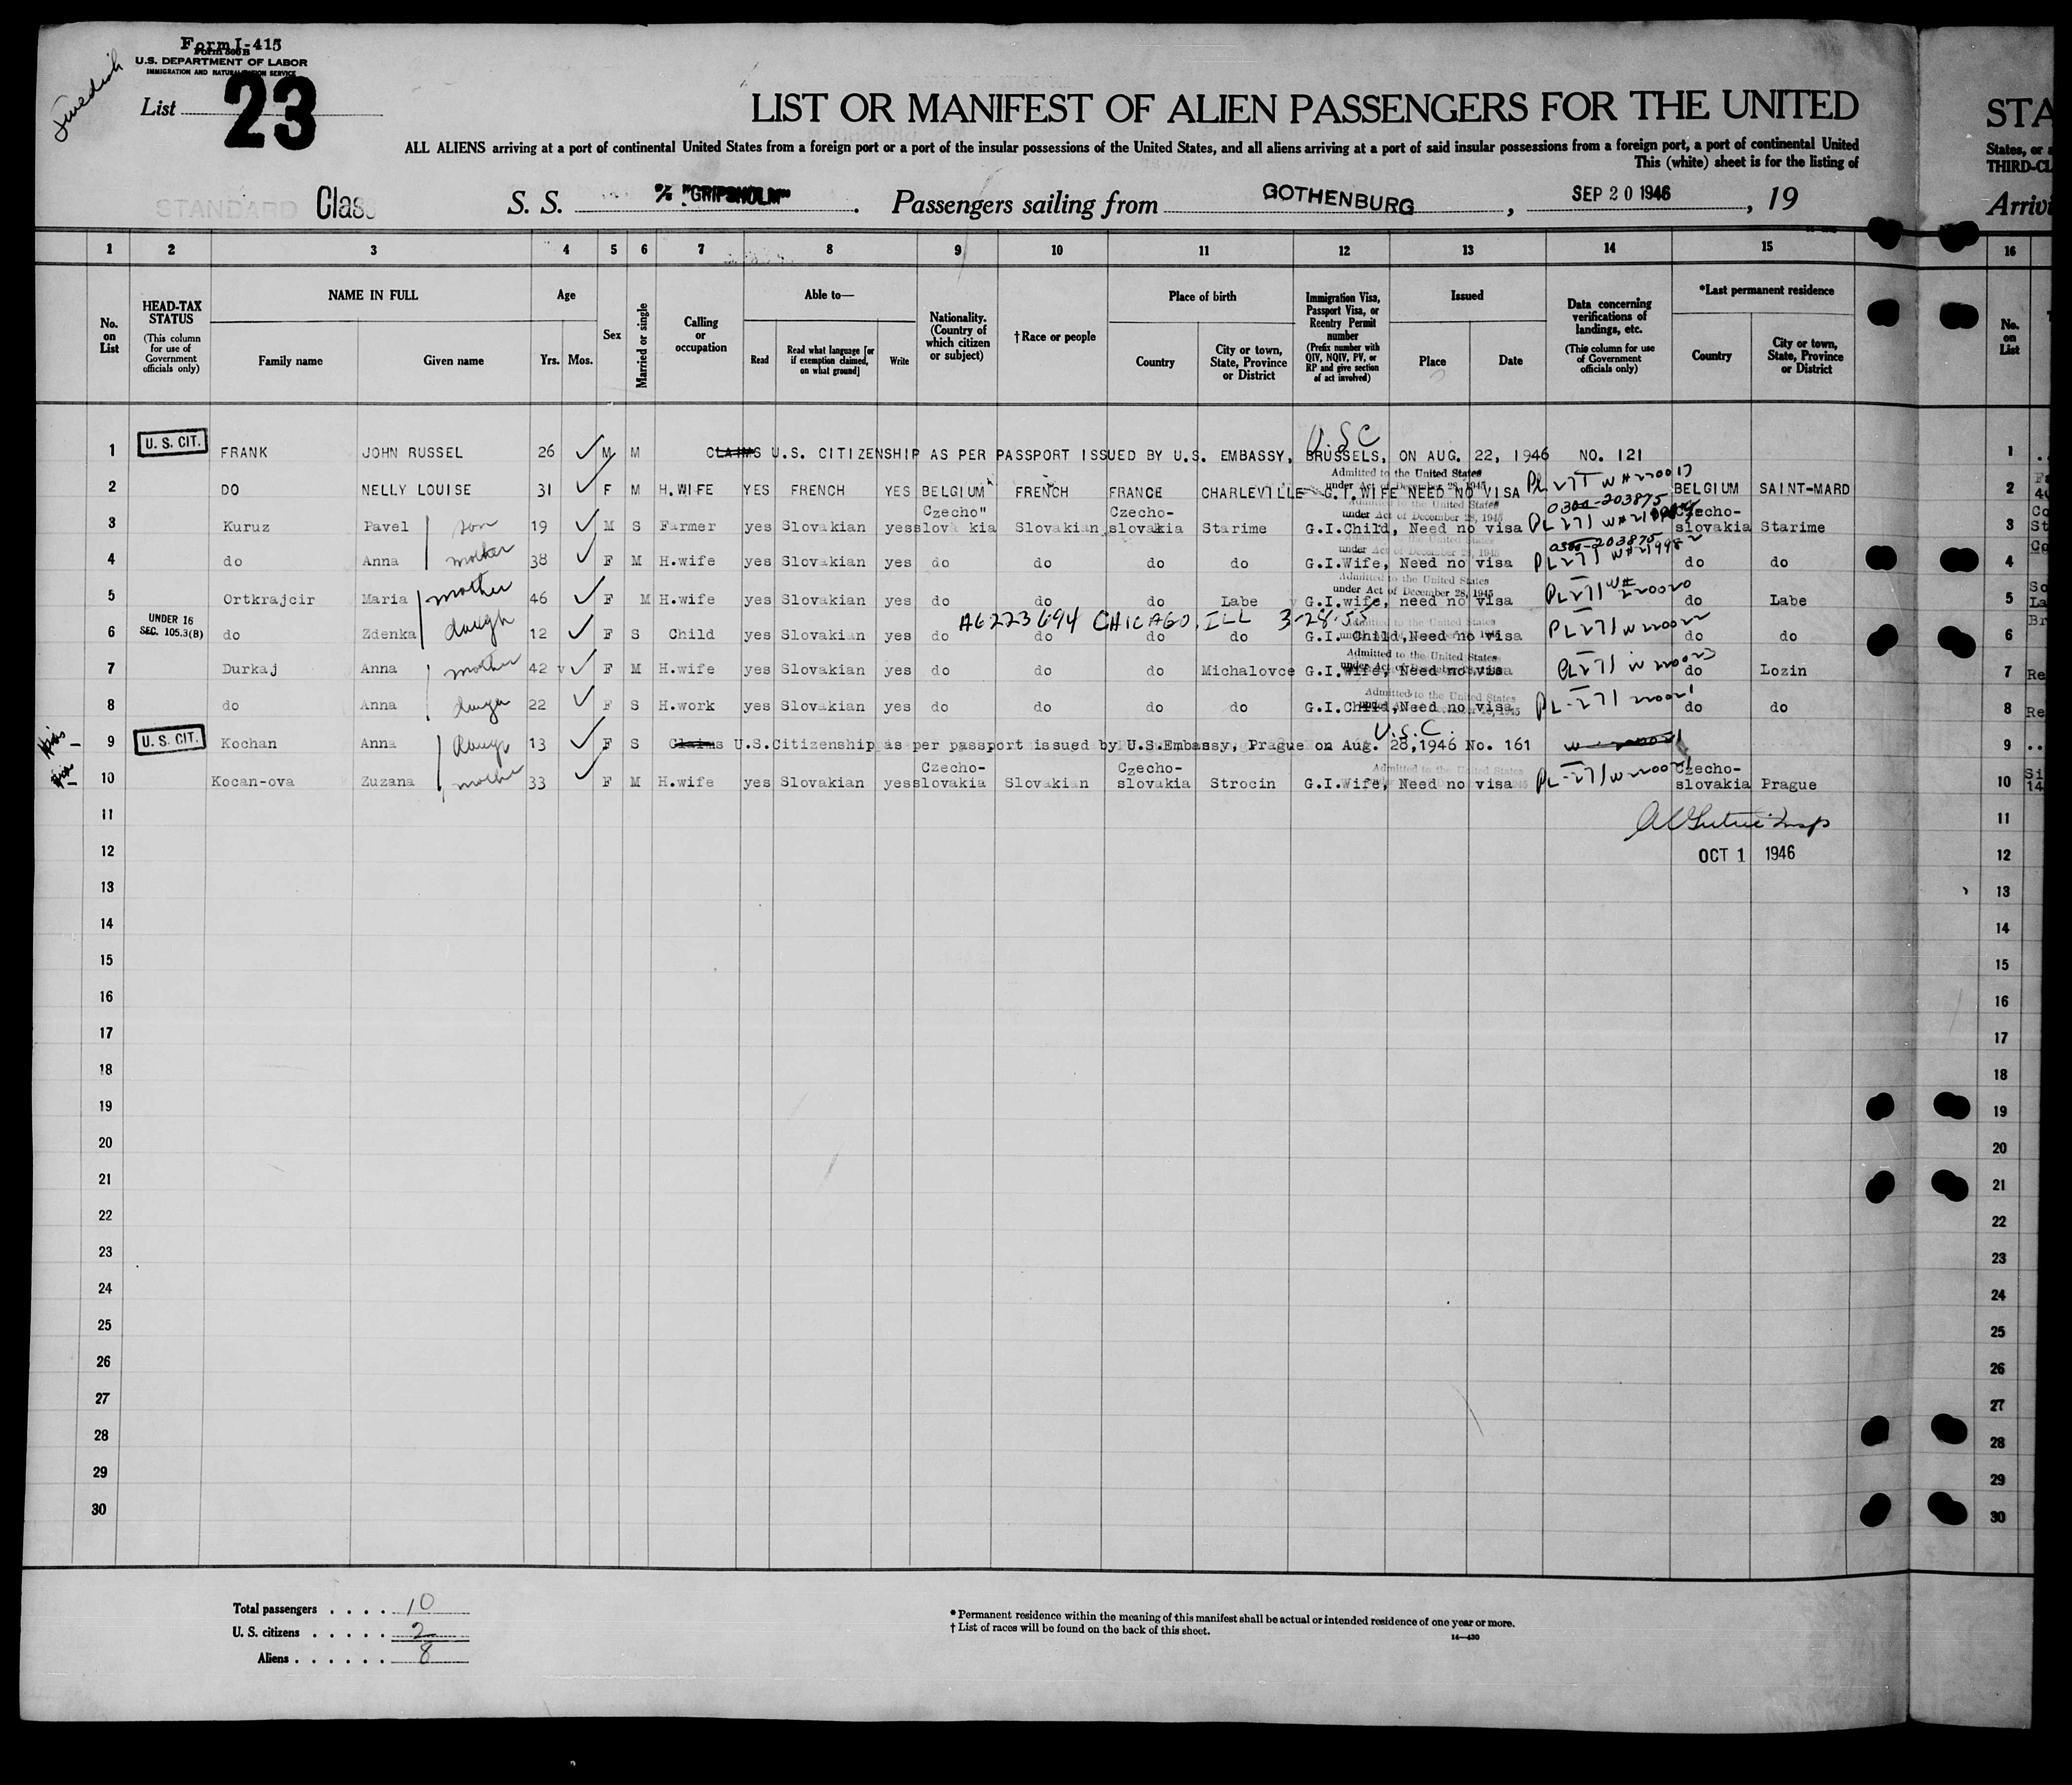 Form I-415
U.S. DEPARTMENT OF LABOR
IMMIGRATION AND NATURALIZATION SERVICE
Swedish
List 23
LIST OR MANIFEST OF ALIEN PASSENGERS FOR THE UNITED
STA
ALL ALIENS arriving at a port of continental United States from a foreign port or a port of the insular possessions of the United States, and all aliens arriving at a port of said insular possessions from a foreign port, a port of continental United
States, or a
This (white) sheet is for the listing of
THIRD-CL
STANDARD Class S. S. "GRIPSHOLM". Passengers sailing from GOTHENBURG, SEP 20 1946, 19
Arrivi
1 2 3 4 5 6 7 8 9 10 11 12 13 14 15 16
No. on List
HEAD-TAX STATUS (This column for use of Government officials only)
NAME IN FULL Family name Given name
Age Yrs. Mos.
Sex
Married or single
Calling or occupation
Able to— Read Read what language [or if exemption claimed, on what ground] Write
Nationality. (Country of which citizen or subject)
†Race or people
Place of birth Country City or town, State, Province or District
Immigration Visa, Passport Visa, or Reentry Permit number (Prefix number with QIV, NQIV, PV, or RP and give section of act involved)
Issued Place Date
Data concerning verifications of landings, etc. (This column for use of Government officials only)
*Last permanent residence Country City or town, State, Province or District
No. on List
U.S.C
1 U. S. CIT. FRANK JOHN RUSSEL 26 M M CLAIMS U.S. CITIZENSHIP AS PER PASSPORT ISSUED BY U.S. EMBASSY, BRUSSELS, ON AUG. 22, 1946 NO. 121 1
Admitted to the United States under Act of December 28, 1945
2 DO NELLY LOUISE 31 F M H.WIFE YES FRENCH YES BELGIUM FRENCH FRANCE CHARLEVILLE G.I. WIFE NEED NO VISA BELGIUM SAINT-MARD 2
0300-203875
under Act of December 28, 1945
3 Kuruz Pavel son 19 M S Farmer yes Slovakian yes Czecho"slovakia Slovakian Czecho-slovakia Starime G.I.Child, Need no visa Czecho-slovakia Starime 3
0300-203875
under Act of December 28, 1945
4 do Anna mother 38 F M H.wife yes Slovakian yes do do do do G.I.Wife, Need no visa do do 4
Admitted to the United States under Act of December 28, 1945
5 Ortkrajcir Maria mother 46 F M H.wife yes Slovakian yes do do do Labe G.I.wife, need no visa PL 271 W# 220020 do Labe 5
A6223694 CHICAGO, ILL 3-28-55
6 UNDER 16 SEC. 105.3(B) do Zdenka daugh 12 F S Child yes Slovakian yes do do do do G.I. Child, Need no visa PL 271 W 220022 do do 6
Admitted to the United States
7 Durkaj Anna mother 42 F M H.wife yes Slovakian yes do do do Michalovce G.I.Wife, Need no visa PL 271 W 220023 do Lozin 7 Re
Admitted to the United States
8 do Anna 22 F S H.work yes Slovakian yes do do do do G.I.Child, Need no visa PL-271 220021 do do 8 Re
U.S.C.
9 U. S. CIT. Kochan Anna 13 F S Claims U.S.Citizenship as per passport issued by U.S.Embassy, Prague on Aug. 28,1946 No. 161 9
Admitted to the United States
10 Kocan-ova Zuzana mother 33 F M H.wife yes Slovakian yes Czecho-slovakia Slovakian Czecho-slovakia Strocin G.I.Wife, Need no visa Czecho-slovakia Prague 10
11 11
12 OCT 1 1946 12
13 13
14 14
15 15
16 16
17 17
18 18
19 19
20 20
21 21
22 22
23 23
24 24
25 25
26 26
27 27
28 28
29 29
30 30
Total passengers . . . . 10
U. S. citizens . . . . . 2
Aliens . . . . . . 8
* Permanent residence within the meaning of this manifest shall be actual or intended residence of one year or more.
† List of races will be found on the back of this sheet.
14—430